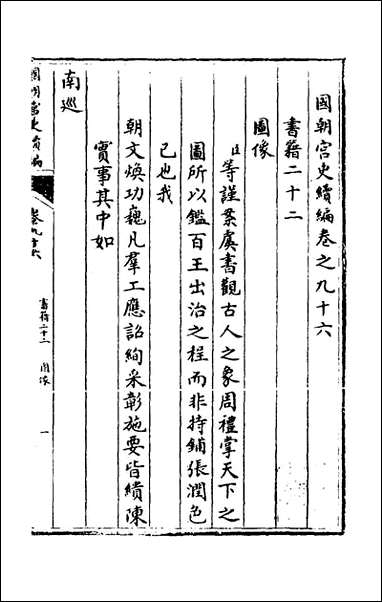 國朝宮史續編卷之九十六
書籍二十二
圖像
臣等謹案虞書觀古人之象周禮掌天下之
圖所以鑑百王出治之程而非特鋪張潤色
已也我
朝文煥功巍凡羣工應詔絢采彰施要皆績陳
實事其中如
南巡
國朝宮史續編
卷九十六
書籍二十二 圖像
一